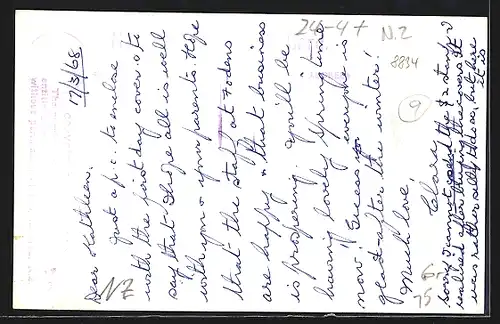 17/3/68
Dear Kathleen.
Just a p.c. to enclose
with the first day cover & to
say that I hope all is well
with you & your parents. Hope
that the staff at Fodens
are happy & that business
is prospering. You'll be
having lovely Springtime
now! Guess everyone is
glad after the winter!
Much love!
Clare
Sorry I cannot send the $2 stamp I
realised after buying the covers it
was rather silly there, but here
it is
24-4+
N.Z
8834
9
NZ
75